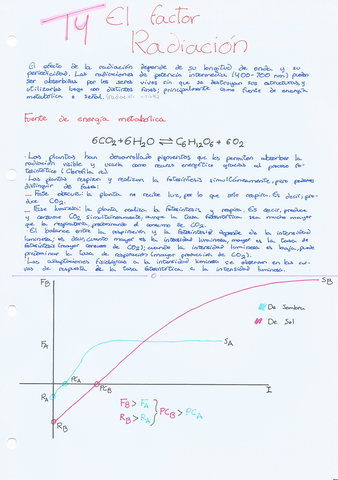 T4 El factor
Radiación
El efecto de la radiación depende de su longitud de onda y su
periodicidad. Las radiaciones de potencia intermedia (400-700 nm) pueden
ser absorbidas por los seres vivos sin que se destruyan sus estructuras y
utilizarla luego con distintos fines; principalmente como fuente de energía
metabólica o señal.
Fuente de energía metabólica
6CO2+6H2O ⇌ C6H12O6 + 6O2
- Las plantas han desarrollado pigmentos que les permiten absorber la
radiación visible y usarla como recurso energético gracias al proceso fo-
tosintético (Clorofila a).
- Las plantas respiran y realizan la fotosíntesis simultáneamente, pero podemos
distinguir dos fases:
- Fase obscura: la planta no recibe luz, por lo que solo respira. Es decir, pro-
duce CO2.
- Fase luminosa: la planta realiza la fotosíntesis y respira. Es decir, produce
y consume CO2 simultáneamente, aunque la tasa fotosintética sea mucho mayor
que la respiratoria, predominando el consumo de CO2.
El balance entre la respiración y la fotosíntesis depende de la intensidad
luminosa; es decir, cuanto mayor es la intensidad luminosa, mayor es la tasa de
fotosíntesis (mayor consumo de CO2); cuando la intensidad luminosa es baja, puede
predominar la tasa de respiración (mayor producción de CO2).
- Las adaptaciones fisiológicas a la intensidad luminosa se observan en las cur-
vas de respuesta de la tasa fotosintética a la intensidad luminosa.
FB
SB
De Sombra
De Sol
FA
SA
PCA
PCB
I
RA
RB
FB > FA
RB > RA
PCB > PCA